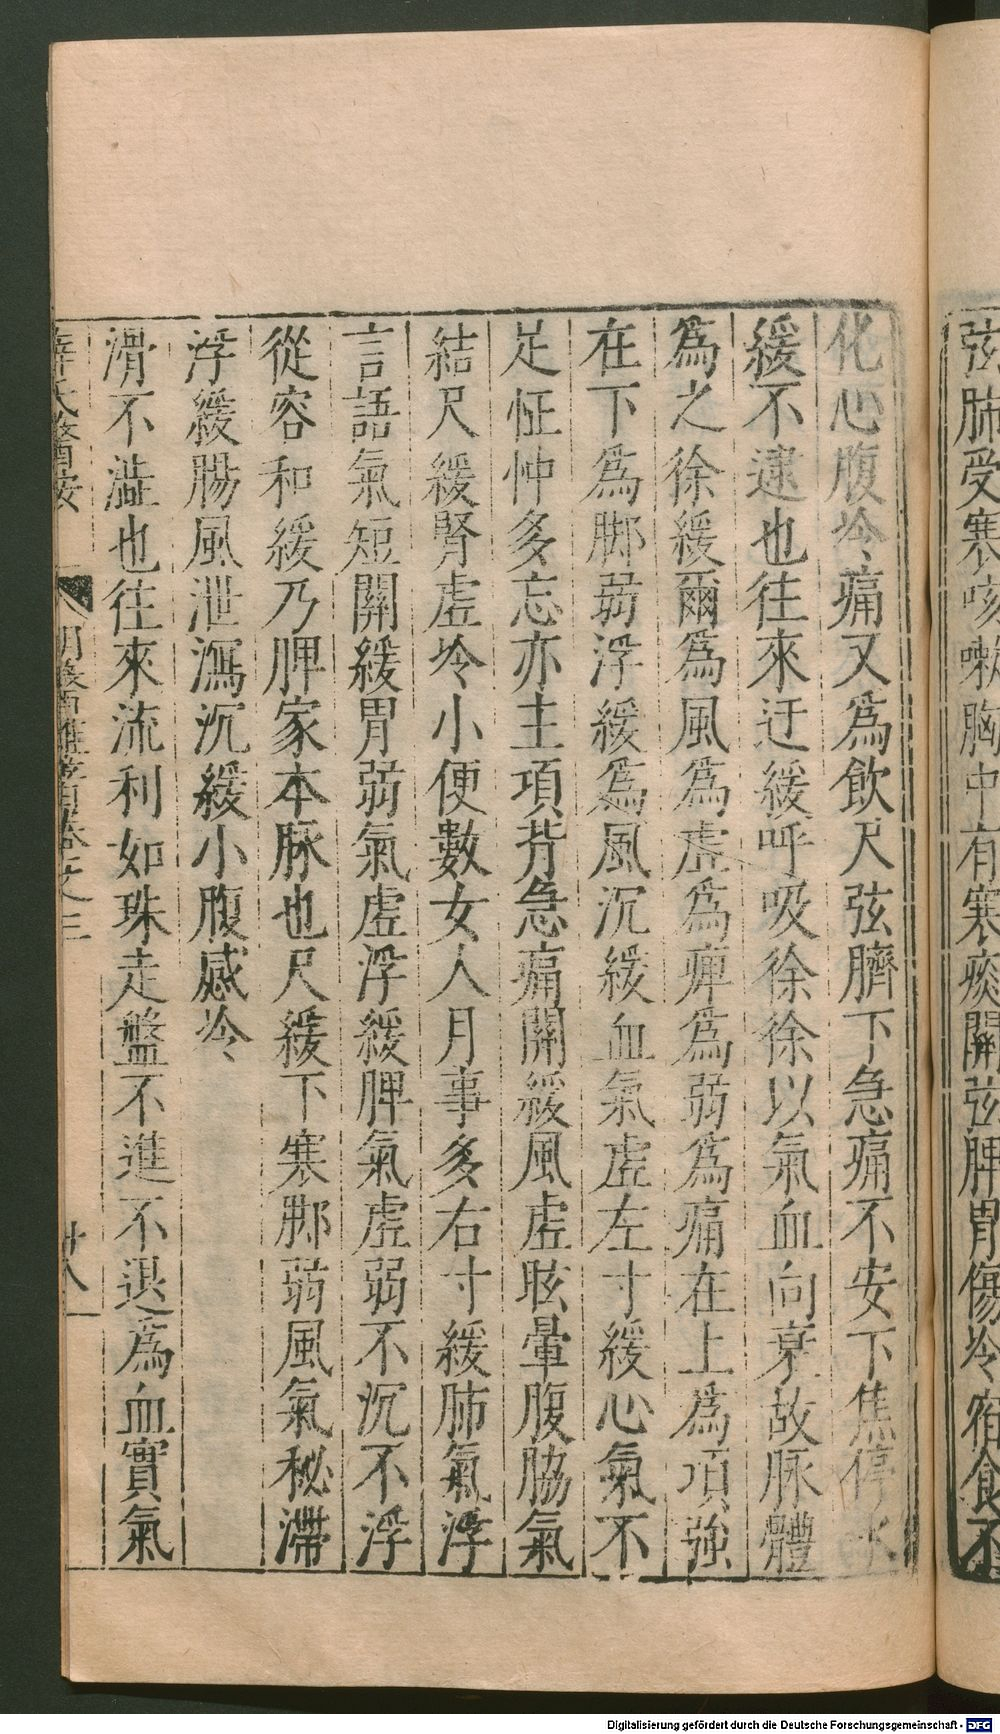 弦肺受寒咳嗽胸中有寒痰關弦脾胃傷冷宿食不
化心腹冷痛又為飲尺弦臍下急痛不安下焦停水
緩不逮也往來迂緩呼吸徐徐以氣血向衰故脉體
為之徐緩爾為風為虛為痺為弱為痛在上為項強
在下為脚弱浮緩為風沉緩血氣虛左寸緩心氣不
足怔忡多忘亦主項背急痛關緩風虛眩暈腹脇氣
結尺緩腎虛冷小便數女人月事多右寸緩肺氣浮
言語氣短關緩胃弱氣虛浮緩脾氣虛弱不沉不浮
從容和緩乃脾家本脉也尺緩下寒脚弱風氣秘滯
浮緩腸風泄瀉沉緩小腹感冷
滑不澁也往來流利如珠走盤不進不退為血實氣
薛氏醫按
卷之三
廿八
Digitalisierung gefördert durch die Deutsche Forschungsgemeinschaft - DFG